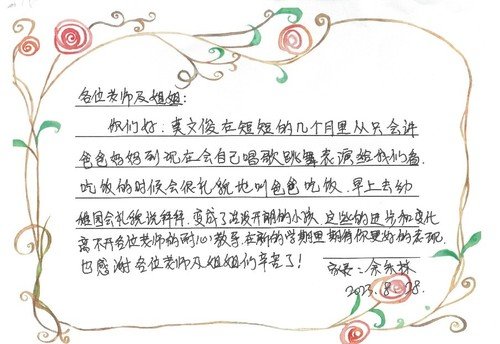 各位老师及姐姐：
你们好：莫文俊在短短的几个月里从只会讲
爸爸妈妈到现在会自己唱歌跳舞表演给我们看
吃饭的时候会很礼貌地叫爸爸吃饭.早上去幼
稚园会礼貌说拜拜.变成了活泼开朗的小孩 这些的进步和变化
离不开各位老师的耐心教导.在新的学期里期待你更好的表现.
也感谢各位老师及姐姐们辛苦了！
家长：余
2023.8.28.